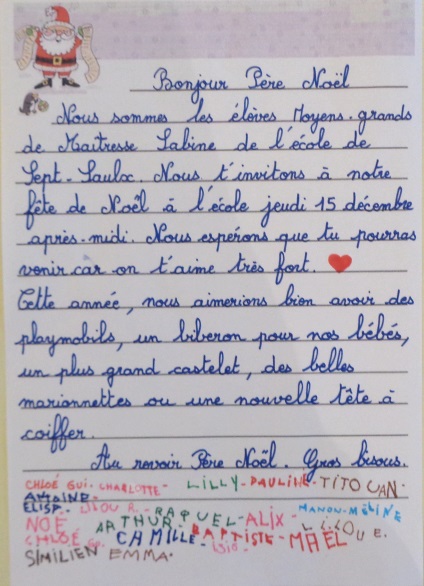 Bonjour Père Noël
Nous sommes les élèves Moyens-grands
de Maîtresse Sabine de l'école de
Sept-Saulx. Nous t'invitons à notre
fête de Noël à l'école jeudi 15 décembre
après-midi. Nous espérons que tu pourras
venir car on t'aime très fort.
Cette année, nous aimerions bien avoir des
playmobils, un biberon pour nos bébés,
un plus grand castelet, des belles
marionnettes ou une nouvelle tête à
coiffer.
Au revoir Père Noël. Gros bisous.
CHLOÉ GUI. CHARLOTTE - LILLY - PAULINE TITOUAN.
ANTOINE -
ELISA - LILOU R. - RAQUEL - ALIX - MANON - MÉLINE
NOÉ ARTHUR LILOU E.
CHLOÉ CAMILLE BAPTISTE - MAËL
SIMILIEN EMMA.